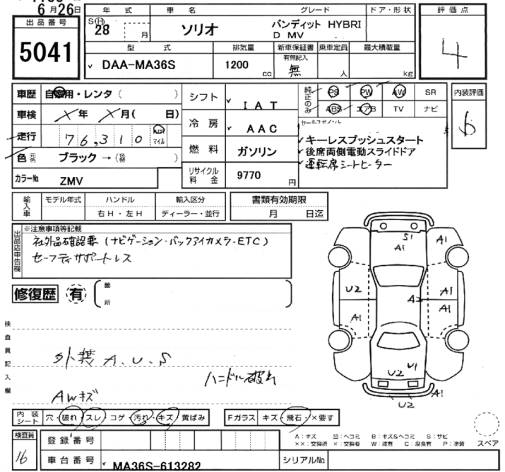 6月26日
出品番号
5041
年式 車名 グレード ドア・形状
S(H) 28 年 月 ソリオ バンディット HYBRI
D MV
評価点
4
型式 排気量 新車保証書 乗車定員 最大積載量
DAA-MA36S 1200 cc 有無記入 無 人 kg
車歴 自家用・レンタ( )
車検 年 月( 日)
走行 76,310 km マイル
色 ブラック→( )
カラーNo ZMV
シフト IAT
冷房 AAC
燃料 ガソリン
リサイクル料金 9770 円
純正のみ PS PW AW SR
ABS エアB TV ナビ
セールスポイント
キーレスプッシュスタート
後席両側電動スライドドア
運転席シートヒーター
内装評価
輸入車 モデル年式 ハンドル 輸入区分
右H・左H ディーラー・並行
書類有効期限
月 日迄
出品店申告欄
※注意事項等記載
社外品確認要(ナビゲーション・バックアイカメラ・ETC)
セーフティサポートレス
修復歴 有 箇所
検査員記入欄
外装 A.U.S
ハンドル破れ
AWキズ
S1
A1
A1
U2
A1
A2
A1
A1
U1
U2
U2
内装シート 穴 破れ スレ コゲ 汚れ キズ 黄ばみ
Fガラス キズ 飛石 ×要す
検査員
16
登録番号
車台番号 MA36S-613282
シリアルNo
スペア